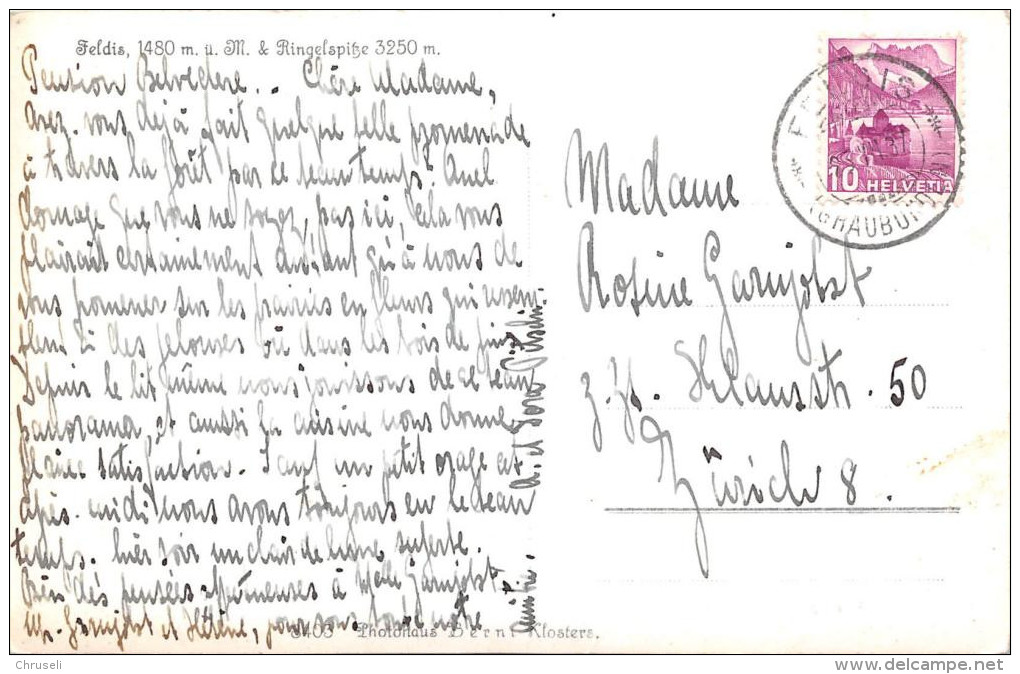 Feldis, 1480 m. ü. M. & Ringelspitze 3250 m.
Pension Belvédere.. Chère Madame,
Avez-vous déjà fait quelque belle promenade
à travers la forêt par ce beau temps? Quel
domage que vous ne soyez pas ici, cela vous
plairait certainement autant qu'à nous de
vous promener sur les prairies en fleurs qui ressem-
blent à des pelouses ou dans les bois de pins.
Depuis le lit même nous jouissons de ce beau
panorama, et aussi la cuisine nous donne
pleine satisfaction. Sauf un petit orage cet
après-midi nous avons toujours eu le beau
temps. hier soir un clair de lune superbe.
Bien dès pensées affectueuses à Melle Garnjobst
Mr. Garnjobst et Hélène, pour vous toute notre
amitié. A. et Dora
Madame
Rosine Garnjobst
z. Zt. Klausstr. 50
Zürich 8.
FELDIS
(GRAUBÜND
10 HELVETIA
3403 Photohaus Berni Klosters.
Chruseli
www.delcampe.net